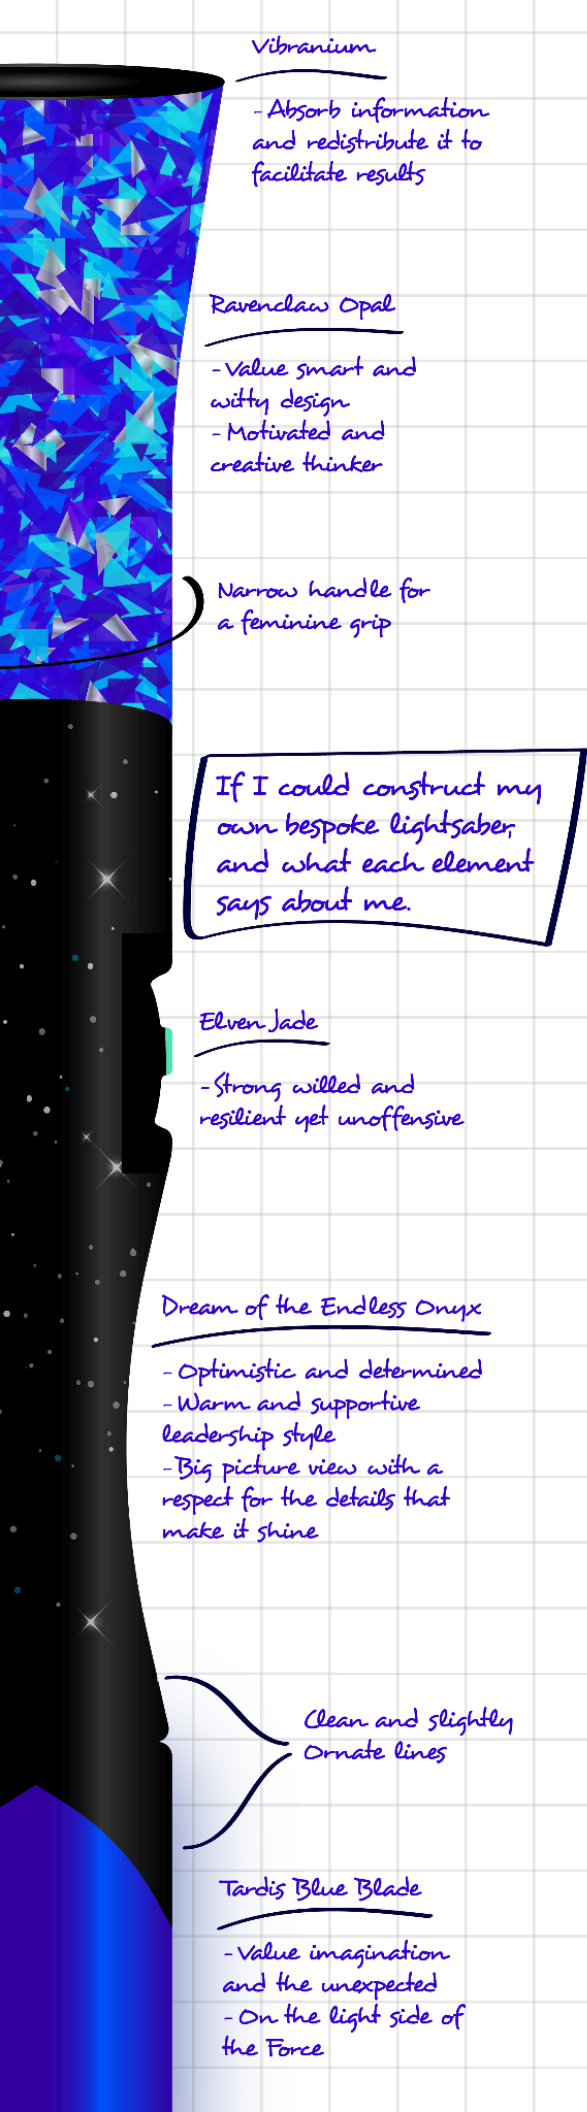 Vibranium
- Absorb information
and redistribute it to
facilitate results
Ravenclaw Opal
- Value smart and
witty design
- Motivated and
creative thinker
Narrow handle for
a feminine grip
If I could construct my
own bespoke lightsaber,
and what each element
says about me.
Elven Jade
- Strong willed and
resilient yet unoffensive
Dream of the Endless Onyx
- Optimistic and determined
- Warm and supportive
leadership style
- Big picture view with a
respect for the details that
make it shine
Clean and slightly
Ornate lines
Tardis Blue Blade
- Value imagination
and the unexpected
- On the light side of
the Force